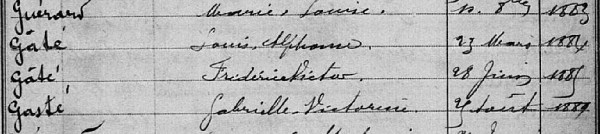 Guérard Marie Louise. 1883
Gâté Louis Alphonse. 23 Mars 1884
Gâté Frédéric Victor 28 Juin 1885
Gasté Gabrielle Victorine. Août